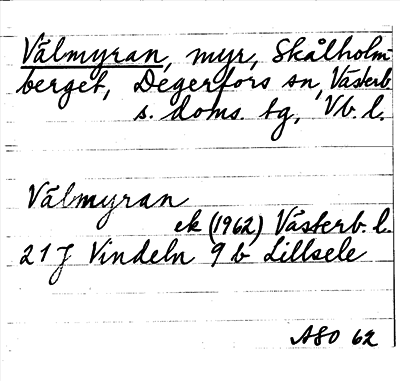 Välmyran, myr, Skålholm-
berget, Degerfors sn, Västerb
s. doms. tg, Vb. l.
Välmyran
ek (1962) Västerb. l.
21 J Vindeln 9 b Lillsele
ASO 62